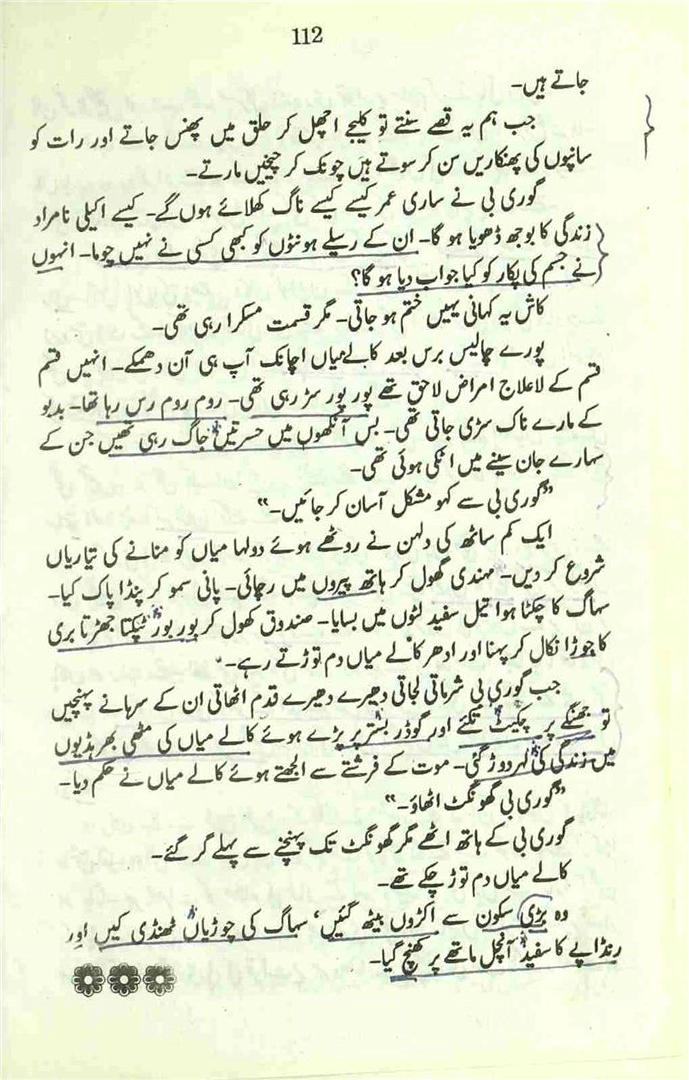 112
جاتے ہیں۔
جب ہم یہ قصے سنتے تو کلیجے اچھل کر حلق میں پھنس جاتے اور رات کو
سانپوں کی پھنکاریں سن کر سوتے ہیں چونک کر چیخیں مارتے۔
گوری بی نے ساری عمر کیسے کیسے ناگ کھلائے ہوں گے۔ کیسے اکیلی نامراد
زندگی کا بوجھ ڈھویا ہو گا۔ ان کے رسیلے ہونٹوں کو کبھی کسی نے نہیں چوما۔ انہوں
نے جسم کی پکار کو کیا جواب دیا ہو گا؟
کاش یہ کہانی یہیں ختم ہو جاتی۔ مگر قسمت مسکرا رہی تھی۔
پورے چالیس برس بعد کالے میاں اچانک آپ ہی آن دھمکے۔ انہیں قسم
قسم کے لاعلاج امراض لاحق تھے پور پور سڑ رہی تھی۔ روم روم رس رہا تھا۔ بدبو
کے مارے ناک سڑی جاتی تھی۔ بس آنکھوں میں حسرتیں جاگ رہی تھیں جن کے
سہارے جان سینے میں اٹکی ہوئی تھی۔
”گوری بی سے کہو مشکل آسان کر جائیں۔“
ایک کم ساٹھ کی دلہن نے روٹھے ہوئے دولہا میاں کو منانے کی تیاریاں
شروع کر دیں۔ مہندی گھول کر ہاتھ پیروں میں رچائی۔ پانی سمو کر پنڈا پاک کیا۔
سہاگ کا چکٹا ہوا تیل سفید لٹوں میں بسایا۔ صندوق کھول کر بور بور ٹپکتا جھڑتا بری
کا جوڑا نکال کر پہنا اور ادھر کالے میاں دم توڑتے رہے۔
جب گوری بی شرماتی لجاتی دھیرے دھیرے قدم اٹھاتی ان کے سرہانے پہنچیں
تو جھنگے پر چکیٹ تکئے اور گوڈر بستر پر پڑے ہوئے کالے میاں کی مٹھی بھر ہڈیوں
میں زندگی کی لہر دوڑ گئی۔ موت کے فرشتے سے الجھتے ہوئے کالے میاں نے حکم دیا۔
”گوری بی گھونگٹ اٹھاؤ۔“
گوری بی کے ہاتھ اٹھے مگر گھونگٹ تک پہنچنے سے پہلے گر گئے۔
کالے میاں دم توڑ چکے تھے۔
وہ بڑی سکون سے اکڑوں بیٹھ گئیں، سہاگ کی چوڑیاں ٹھنڈی کیں اور
رنڈاپے کا سفید آنچل ماتھے پر کھنچ گیا۔